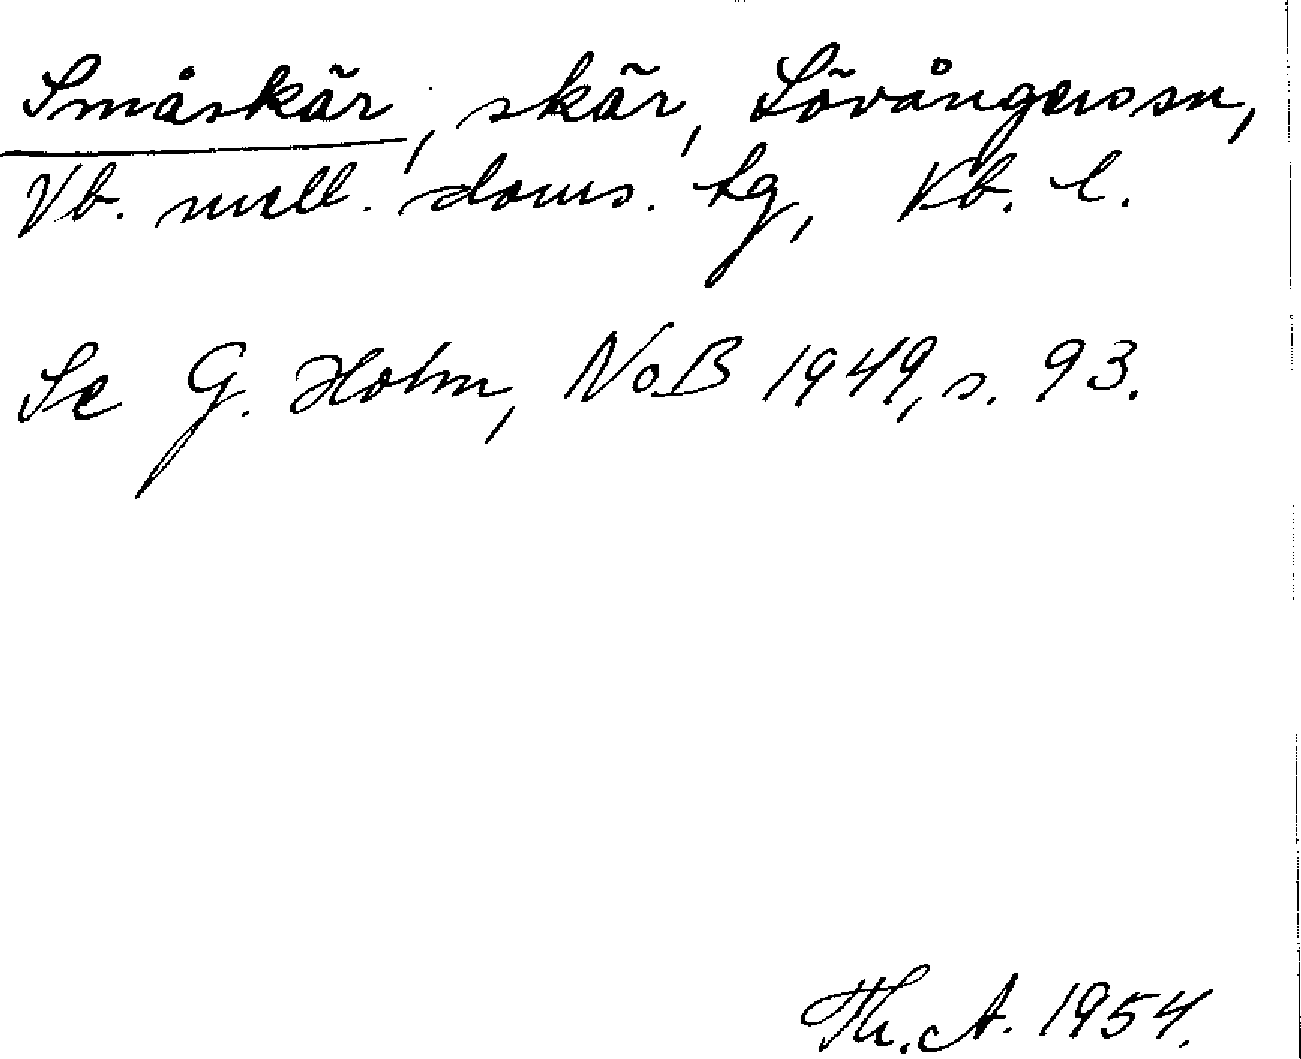 Småskär, skär, Lövångers sn,
Vb. mell. doms. tg, Vb. l.
Se G. Holm, NoB 1949, s. 93.
Th. A. 1954.